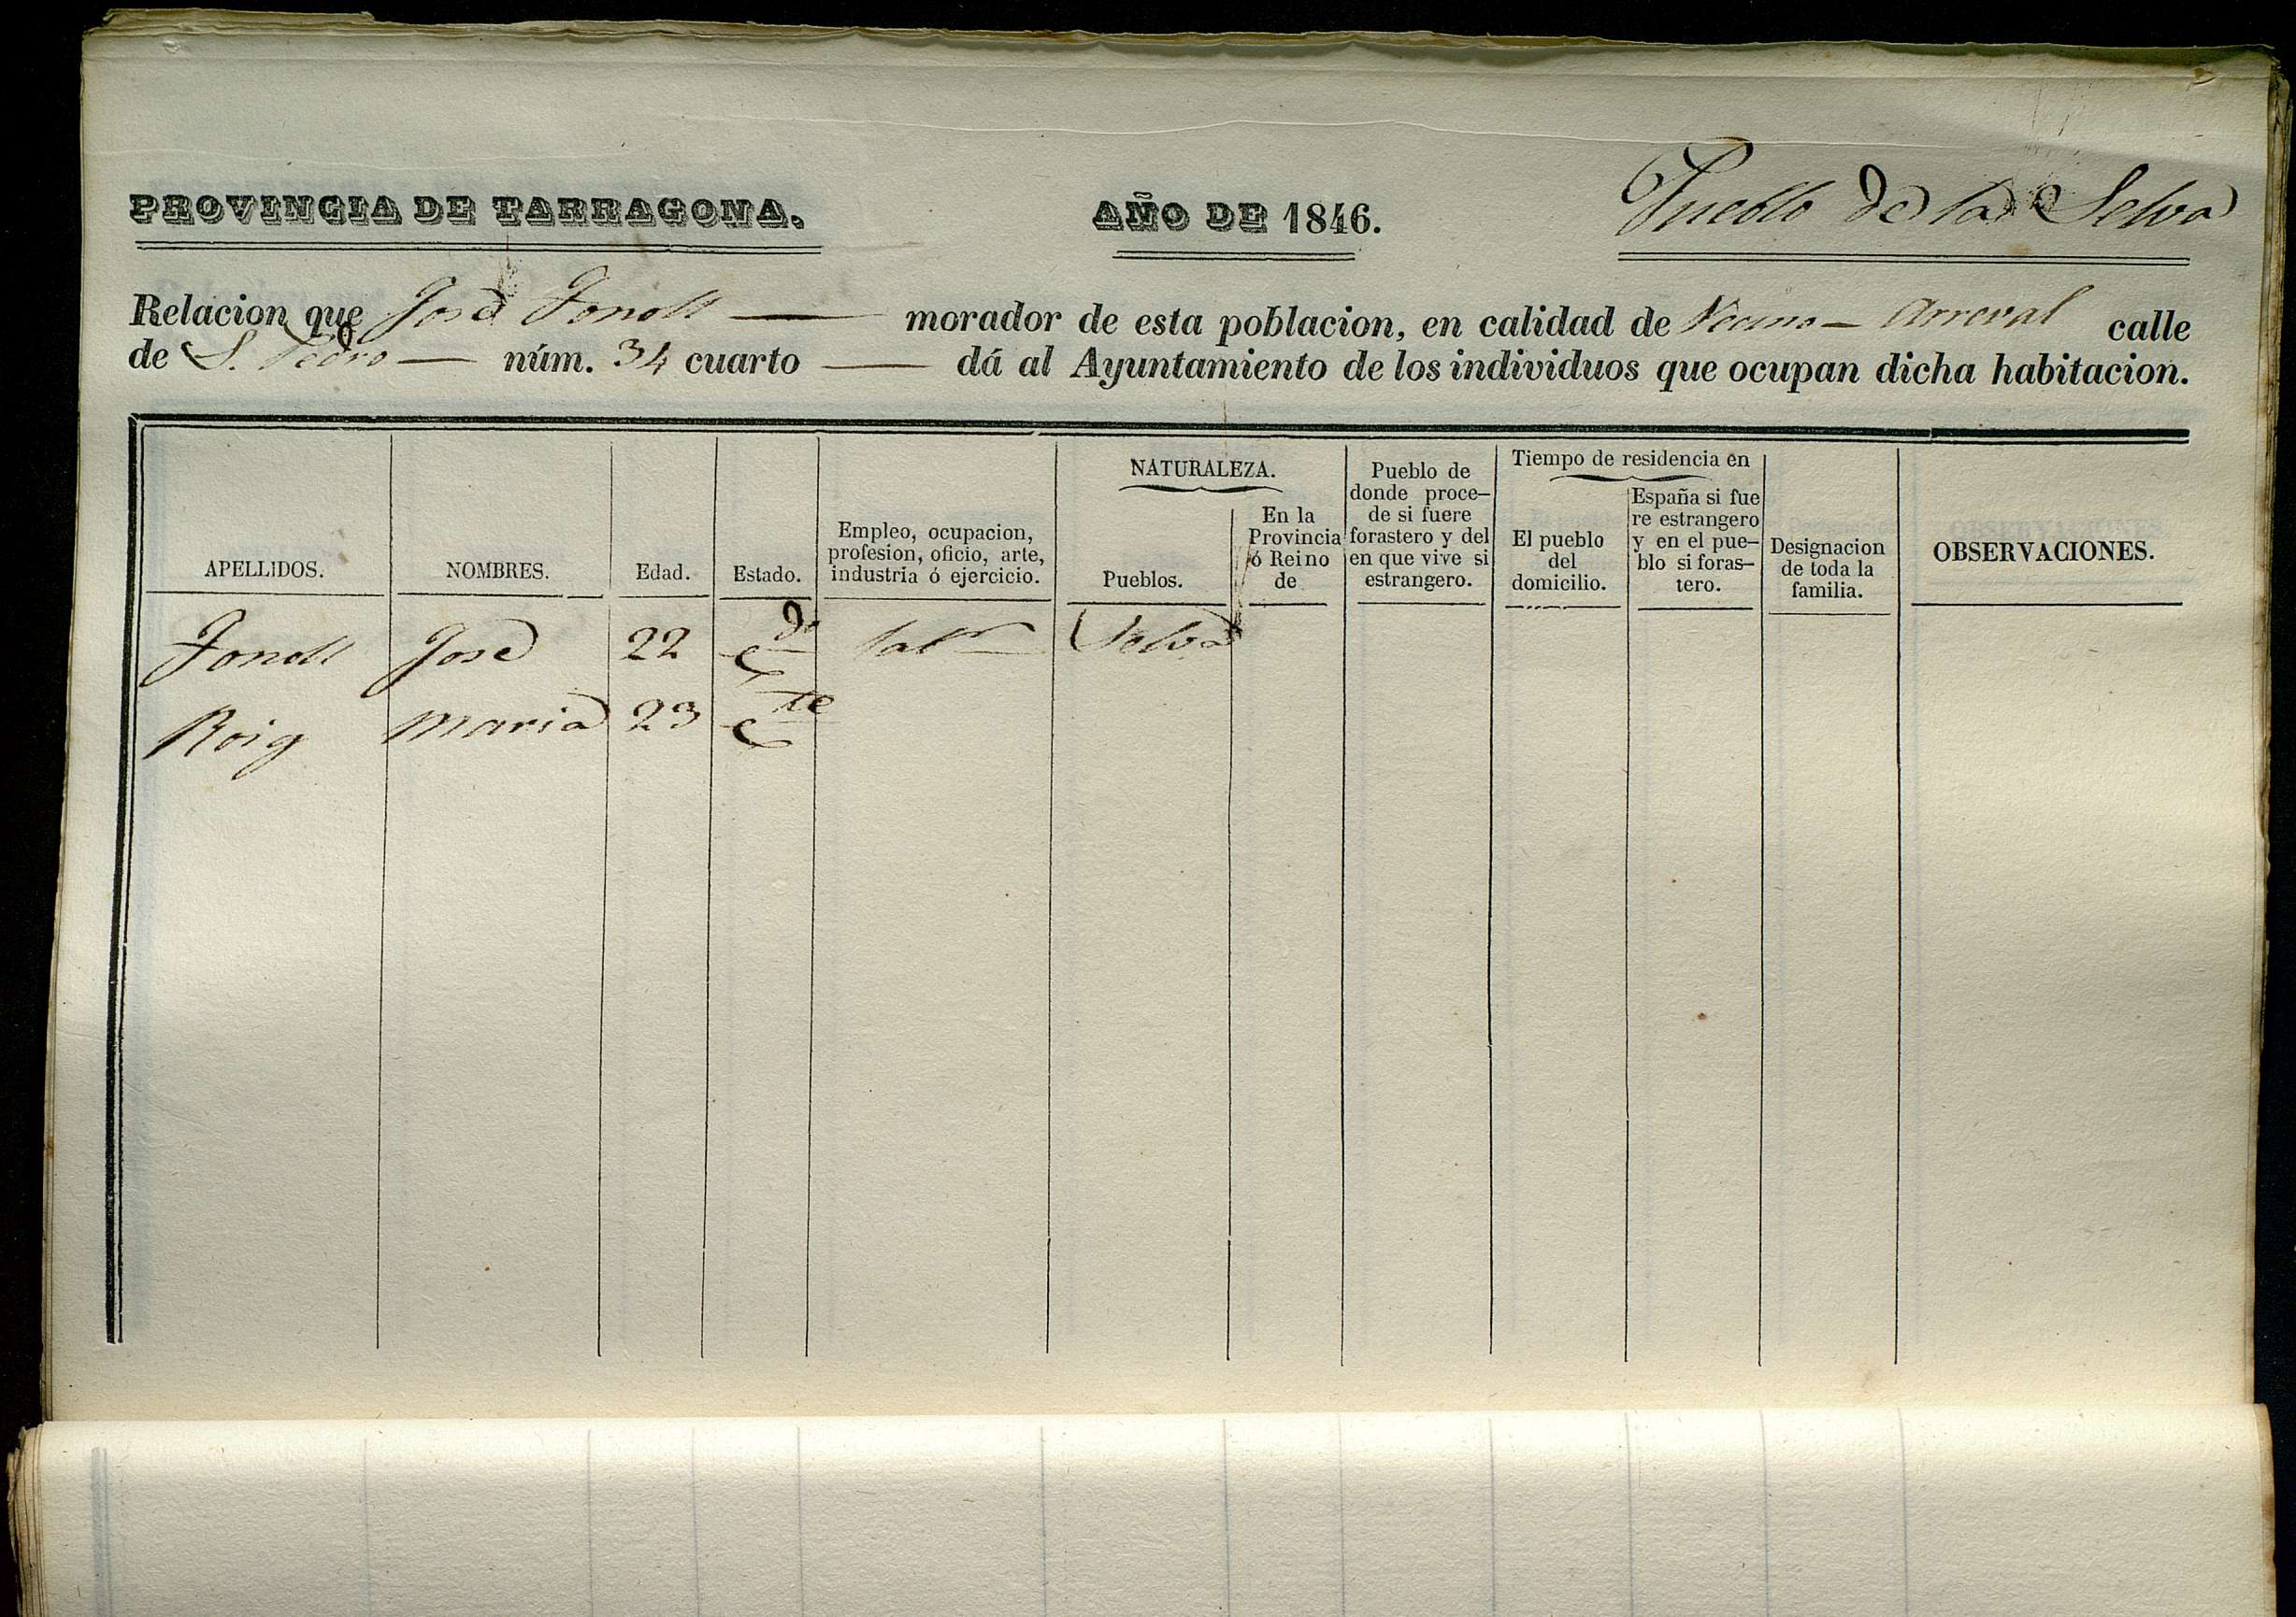 PROVINCIA DE TARRAGONA. AÑO DE 1846. Pueblo de la Selva
Relacion que José Fonoll — morador de esta poblacion, en calidad de Vecino — Arreval calle
de S. Pedro — núm. 34 cuarto — dá al Ayuntamiento de los individuos que ocupan dicha habitacion.
APELLIDOS.
NOMBRES.
Edad.
Estado.
Empleo, ocupacion,
profesion, oficio, arte,
industria ó ejercicio.
NATURALEZA.
Pueblos.
En la
Provincia
ó Reino
de
Pueblo de
donde proce-
de si fuere
forastero y del
en que vive si
estrangero.
Tiempo de residencia en
El pueblo
del
domicilio.
España si fue
re estrangero
y en el pue-
blo si foras-
tero.
Designacion
de toda la
familia.
OBSERVACIONES.
Fonoll José 22 Cdo Labr Selva
Roig Maria 23 Cte